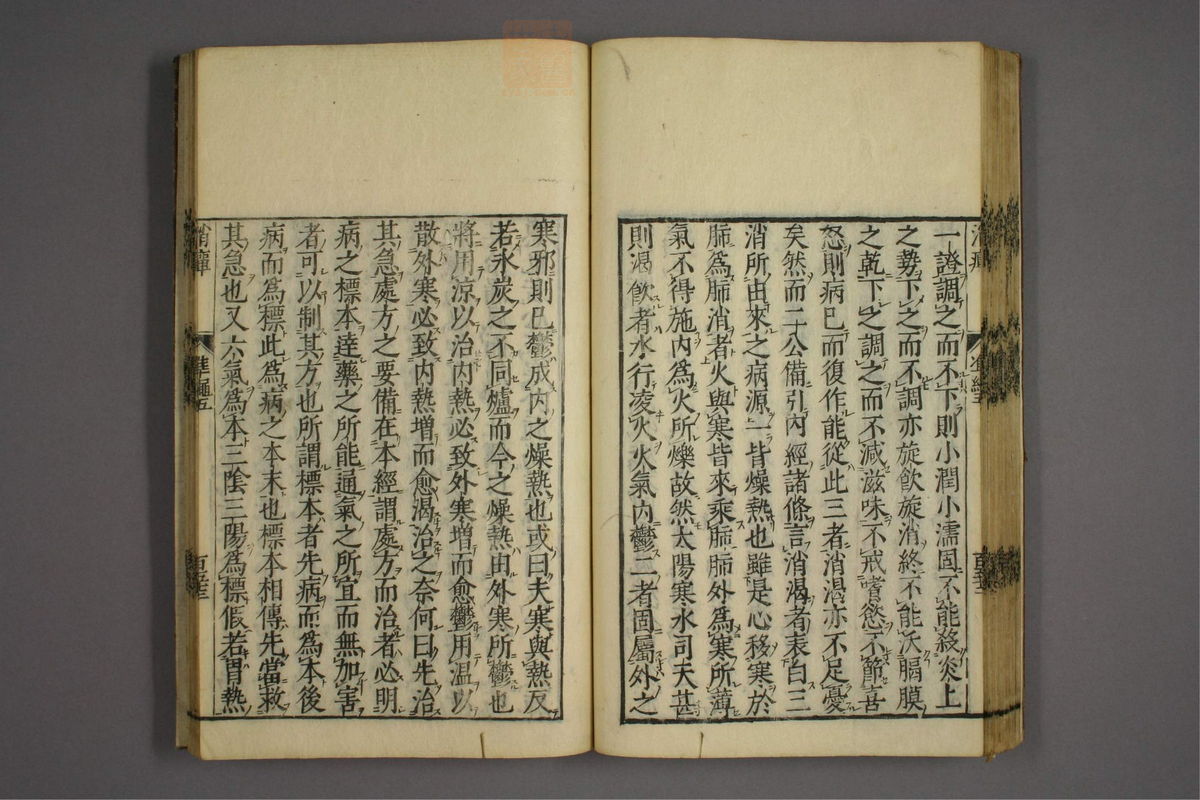 一證調之而不下則小潤小濡固不能殺炎上
之勢下之而不調亦旋飲旋消終不能沃膈膜
之乾下之調之而不減滋味不戒嗜慾不節喜
怒則病已而復作能從此三者消渴亦不足憂
矣然而二公備引內經諸條言消渴者表白三
消所由來之病源一皆燥熱也雖是心移寒於
肺為肺消者火與寒皆來乘肺肺外為寒所薄
氣不得施內為火所爍故然太陽寒水司天甚
則渴飲者水行凌火火氣內鬱二者固屬外之
寒邪則已鬱成內之燥熱也或曰夫寒與熱反
若氷炭之不同爐而今之燥熱由外寒所鬱也
將用涼以治內熱必致外寒增而愈鬱用溫以
散外寒必致內熱增而愈渴治之奈何曰先治
其急處方之要備在本經謂處方而治者必明
病之標本達藥之所能通氣之所宜而無加害
者可以制其方也所謂標本者先病而為本後
病而為標此為病之本末也標本相傳先當救
其急也又六氣為本三陰三陽為標假若胃熱
消癉
準繩五